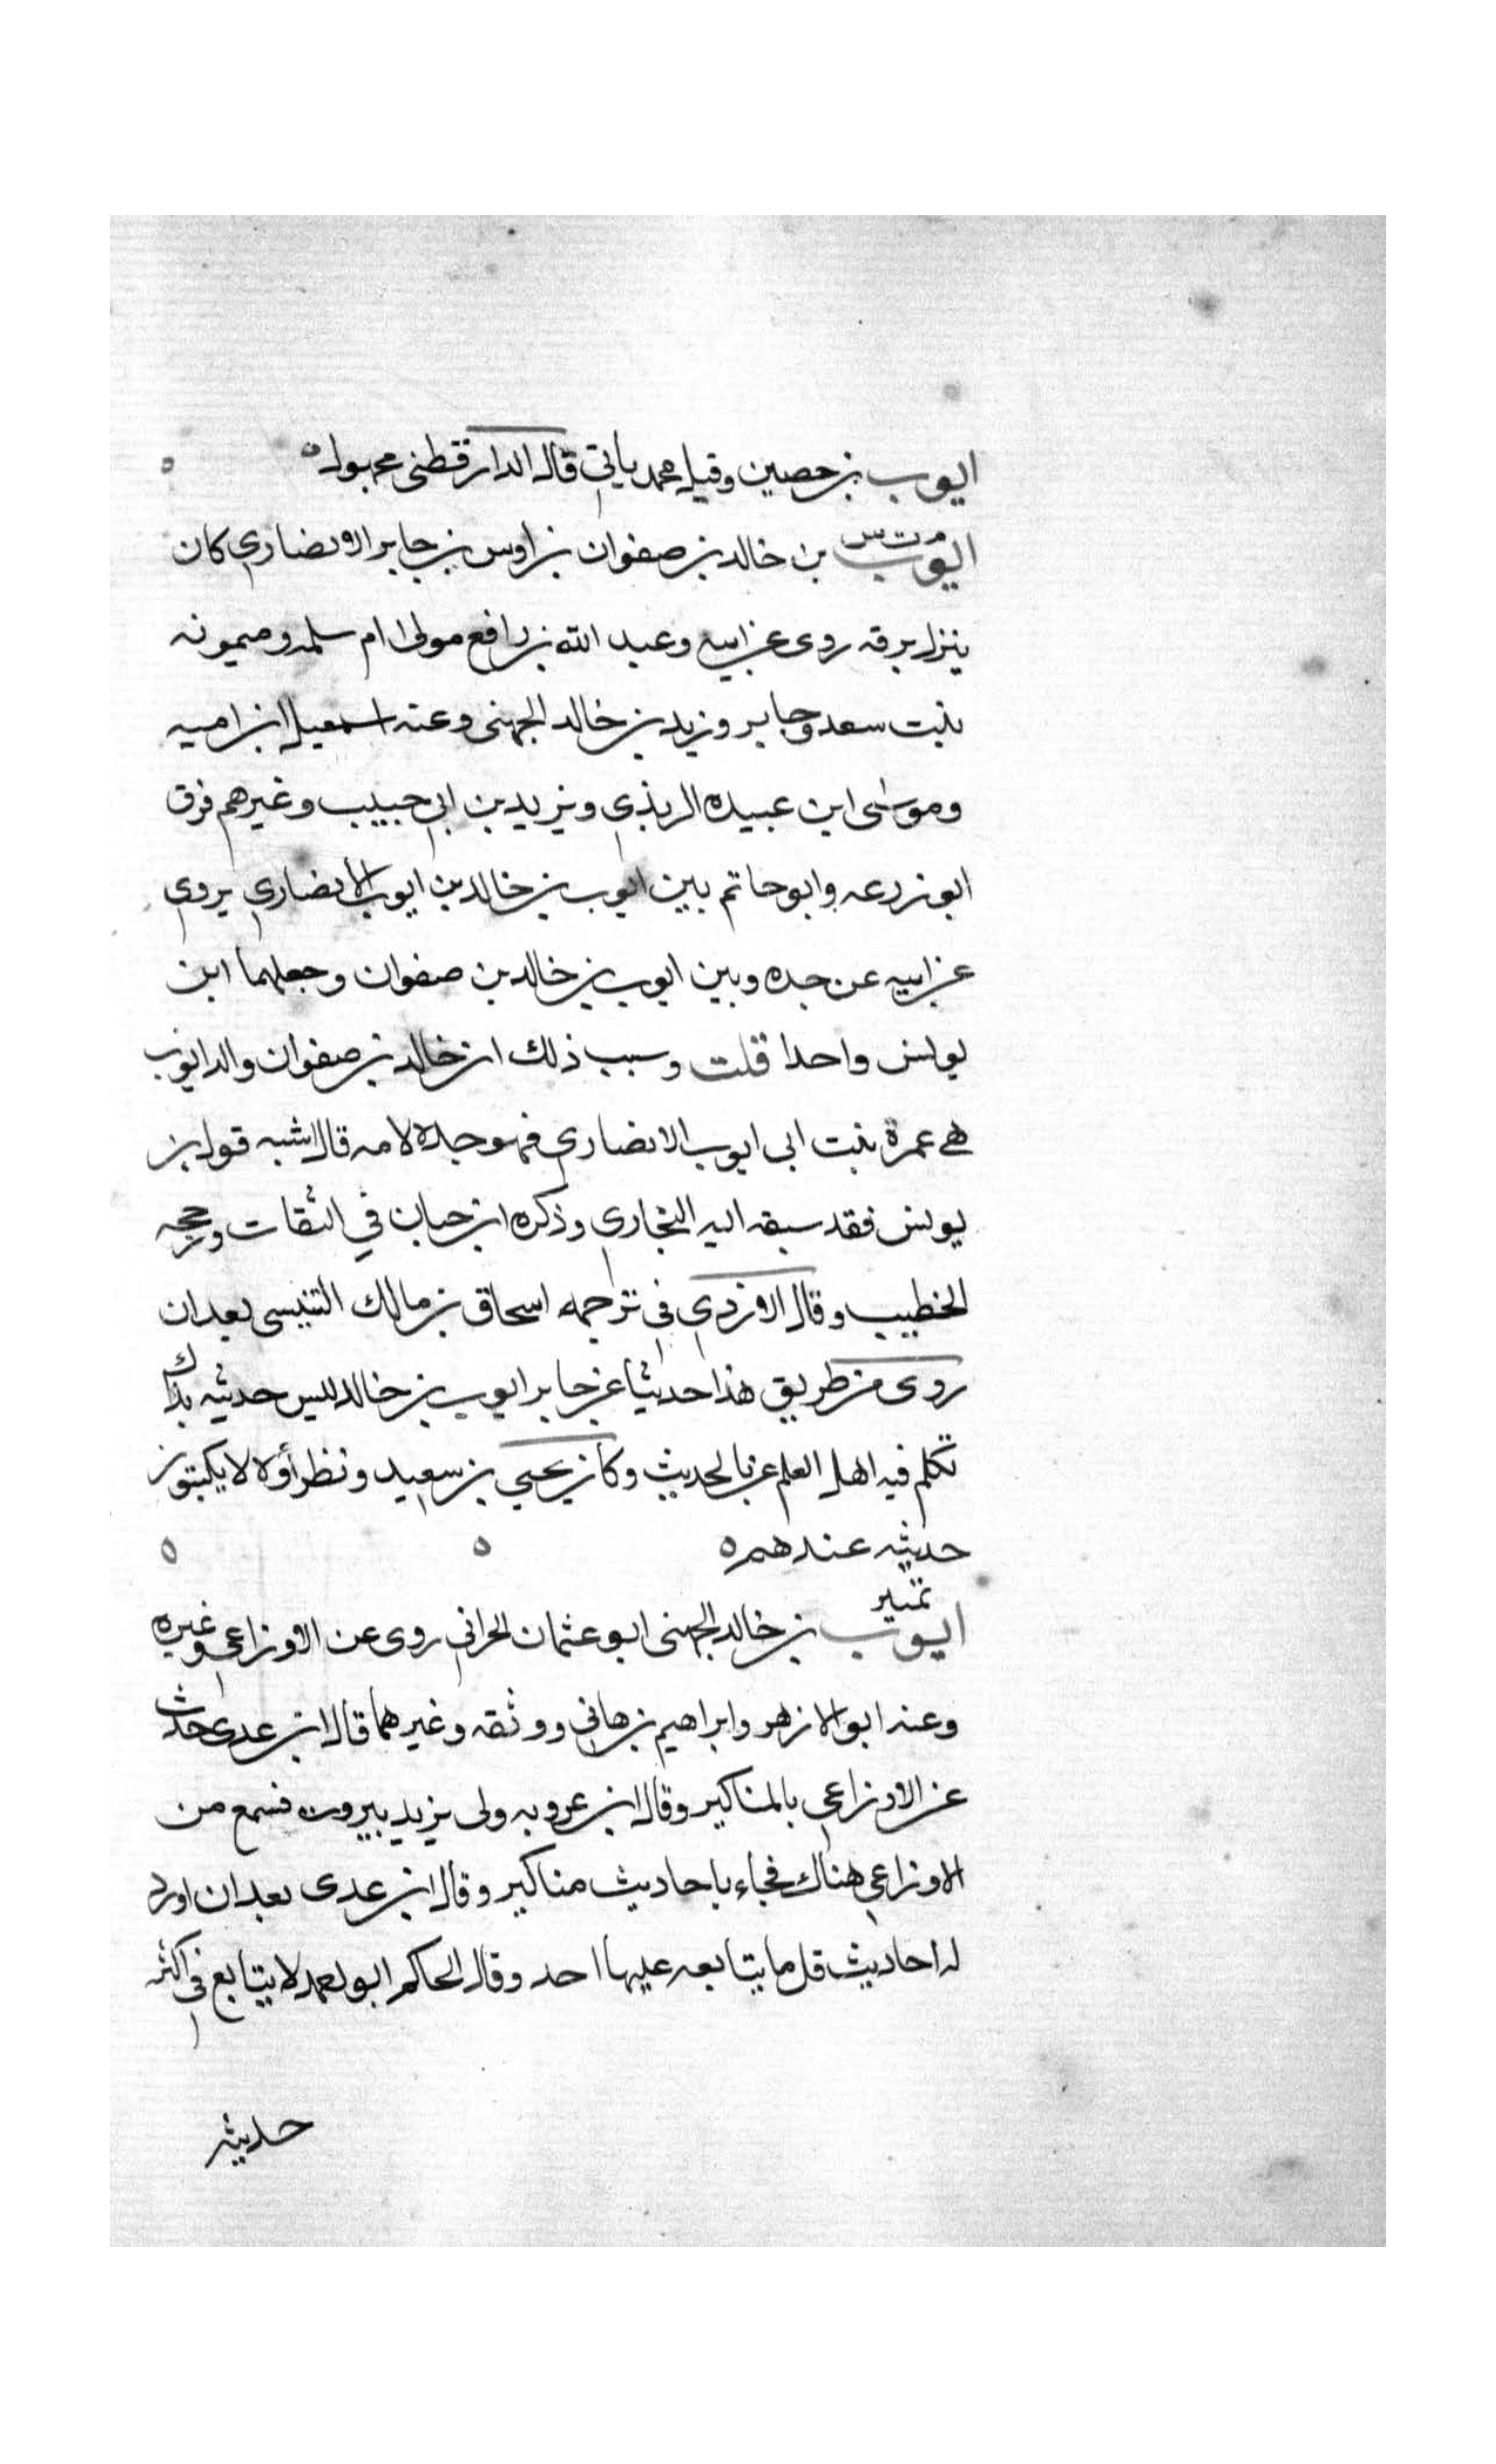 ايوب بن حصين وقيل محمد ياتي قال الدارقطني مجهول ه
م ت س
ايوب بن خالد بن صفوان بن اوس بن جابر الانصاري كان
ينزل برقه روى عن ابيه وعبد الله بن رافع مولى ام سلمه وميمونه
بنت سعد وجابر وزيد بن خالد الجهني وعنه اسمعيل ابن اميه
وموسى ابن عبيده الربذي ويزيد بن ابي حبيب وغيرهم فرق
ابو زرعه وابو حاتم بين ايوب بن خالد بن ايوب الانصاري يروي
عن ابيه عن جده وبين ايوب بن خالد بن صفوان وجعلهما ابن
يونس واحدا قلت وسبب ذلك ان خالد بن صفوان والد ايوب
هي عمرة بنت ابي ايوب الانصاري فهو جده لامه قال اشبه قول بن
يونس فقد سبقه اليه البخاري وذكره ابن حبان في الثقات ورجحه
الخطيب وقال الازدي في ترجمه اسحاق بن مالك التنيسي بعد ان
روى من طريق هذا حديثا عن جابر ايوب بن خالد ليس حديثه بذاك
تكلم فيه اهل العلم بالحديث وكان يحيي بن سعيد ونظراؤه لا يكتبون
حديثه عندهم ه
تمييز
ايوب بن خالد الجهني ابو عثمان الحراني روى عن الاوزاعي وغيره
وعنه ابو الازهر وابراهيم بن هاني ووثقه وغيرهما قال ابن عدي حدث
عن الاوزاعي بالمناكير وقال ابن عروبه ولي يزيد بيروت فسمع من
الاوزاعي هناك فجاء باحاديث مناكير وقال ابن عدى بعد ان اورد
له احاديث قل ما يتابعه عليها احد وقال الحاكم ابو احمد لا يتابع في اكثر
حديثه